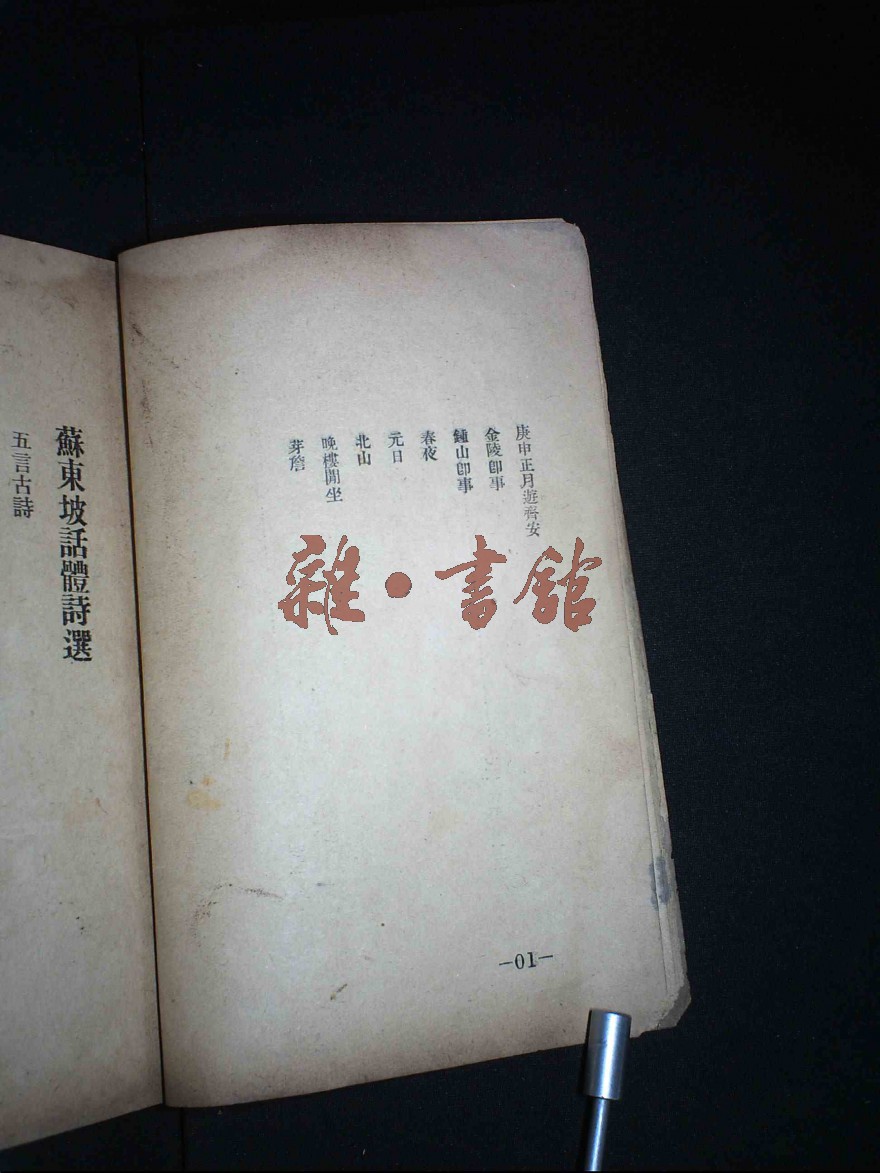 庚申正月遊齊安
金陵卽事
鍾山卽事
春夜
元日
北山
晚樓閒坐
芽簷
雜·書館
—01—
蘇東坡話體詩選
五言古詩